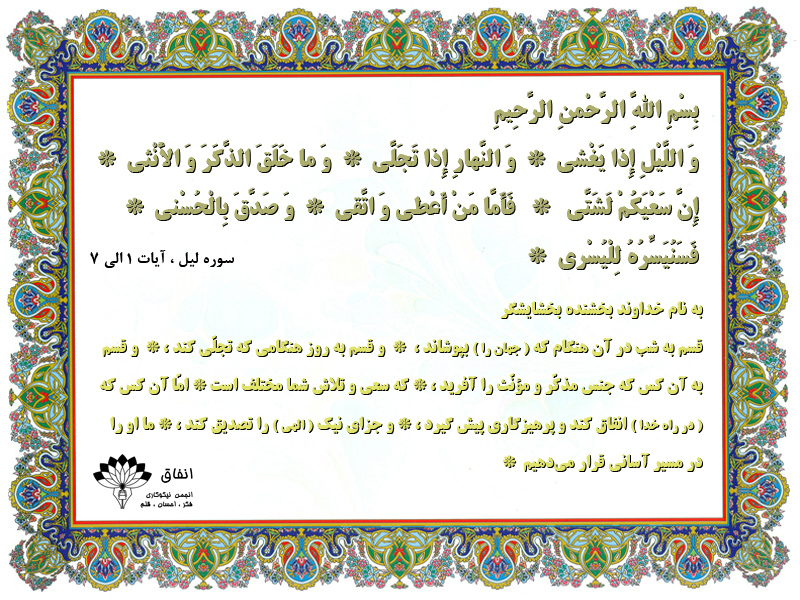 بِسْمِ اللهَِّ الرَّحْمنِ الرَّحِيمِ
وَ اللَّيْلِ إِذا يَغْشى * وَ النَّهارِ إِذا تَجَلَّى * وَ ما خَلَقَ الذَّكَرَ وَ الْأُنْثى *
إِنَّ سَعْيَكُمْ لَشَتَّى * فَأَمَّا مَنْ أَعْطى وَ اتَّقى * وَ صَدَّقَ بِالْحُسْنى *
فَسَنُيَسِّرُهُ لِلْيُسْرى *
سوره لیل ، آیات ۱ الی ۷
به نام خداوند بخشنده بخشایشگر
قسم به شب در آن هنگام که ( جهان را ) بپوشاند ، * و قسم به روز هنگامی که تجلّی کند ، * و قسم
به آن کس که جنس مذکّر و مؤنّث را آفرید ، * که سعی و تلاش شما مختلف است * امّا آن کس که
( در راه خدا ) انفاق کند و پرهیزگاری پیش گیرد ، * و جزای نیک ( الهی ) را تصدیق کند ، * ما او را
در مسیر آسانی قرار می‌دهیم *
انفاق
انجمن نیکوکاری
فکر ، احسان ، قلم